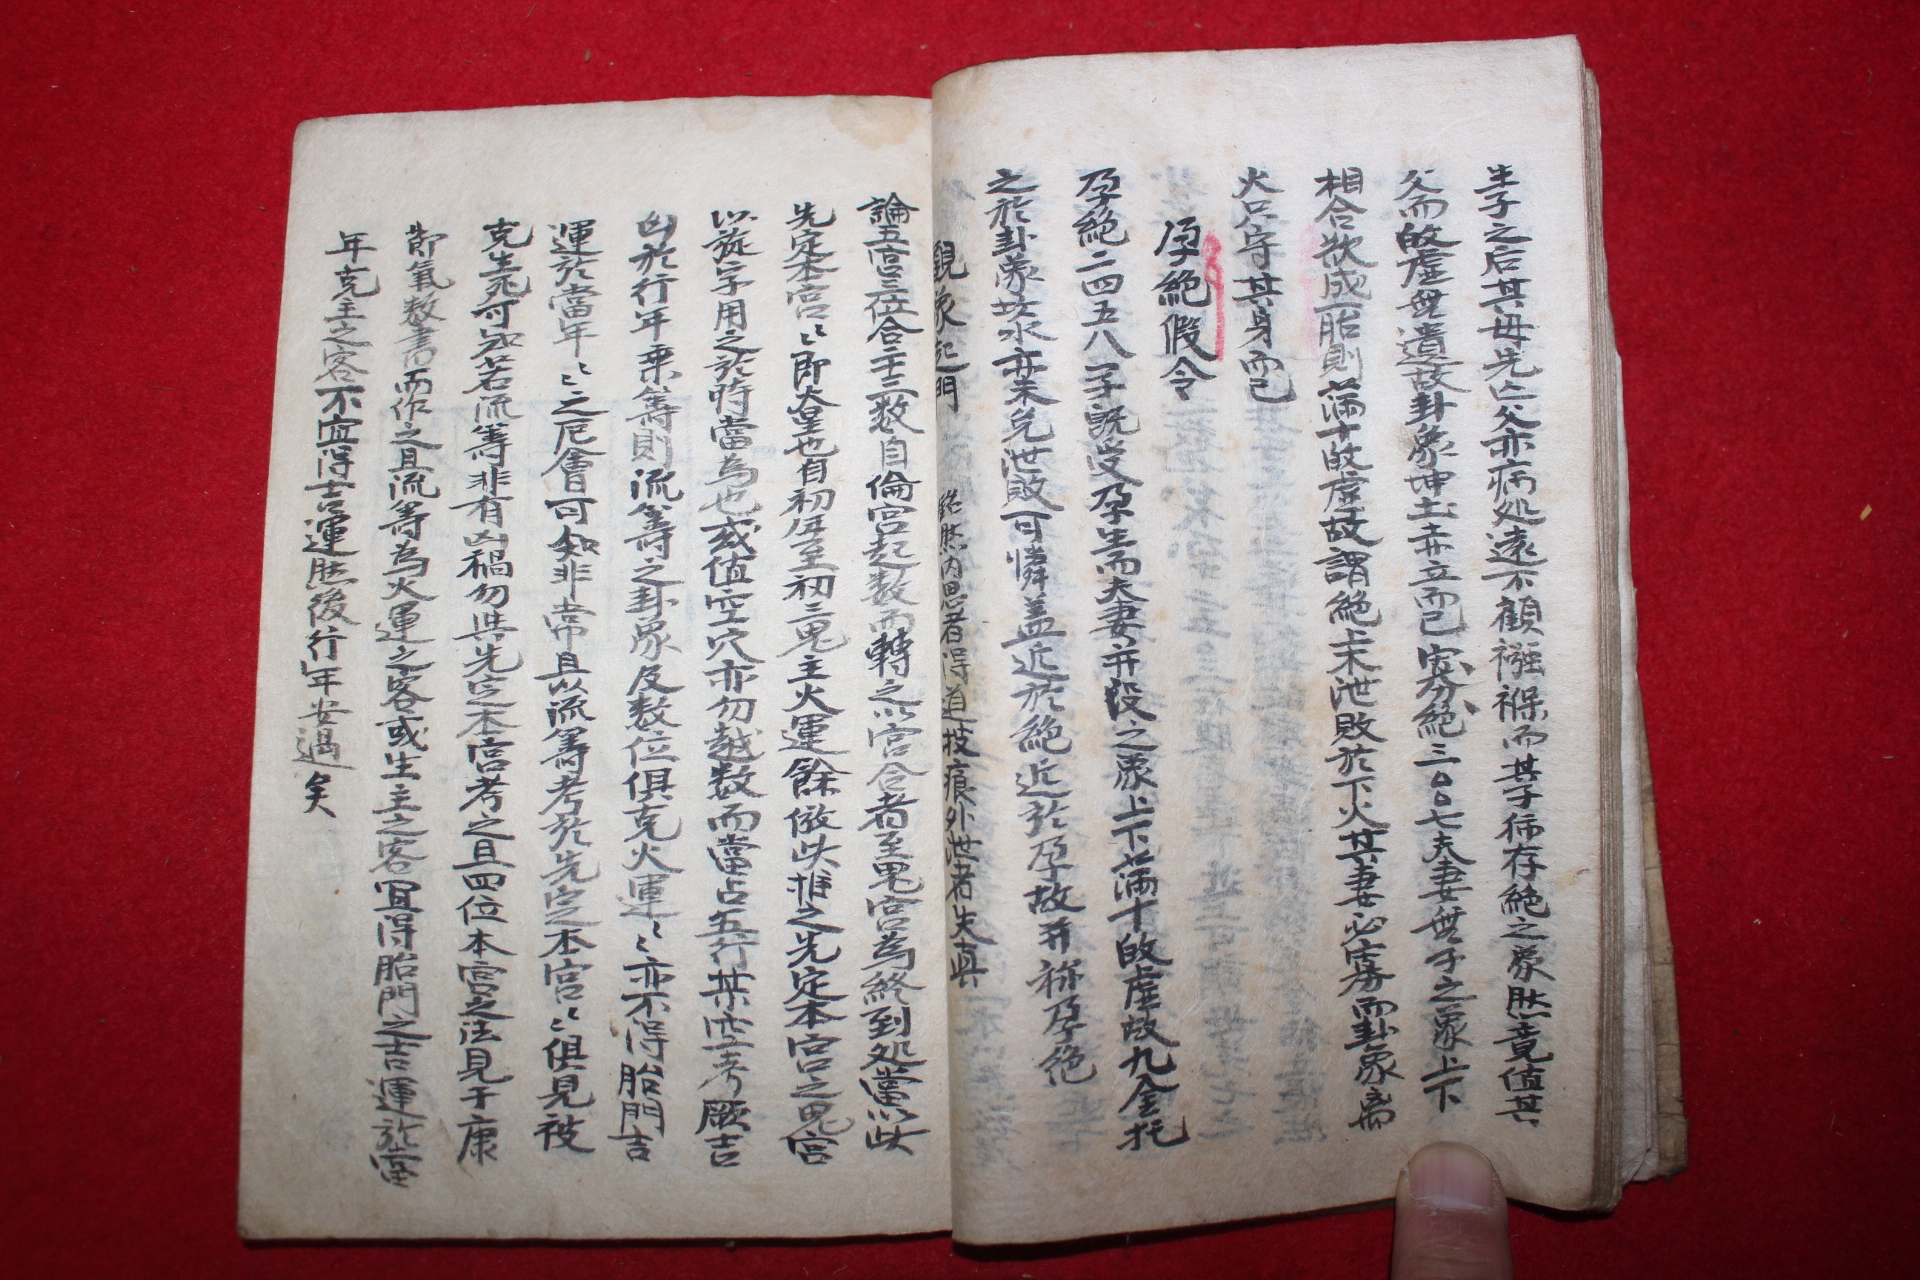 生子之后其母先亡父亦病処遠不顧襁褓而其子徜存絶之象然竟值其
父而故虛無遺故卦象坤土弃立而已 寡分絶三〻七夫妻無子之象上下
相合欲成一胎則蒲十故虛故謂絶上未泄敗於下火其妻必孀而卦象离
火只守其身而已
孕絶假令
孕絶二四五八一子旣受孕生而夫妻并役之象上下蒲十故虛故九金托
之於卦象坎水亦未免泄敗可憐盖近於絶近於孕故并称孕絶
觀象起門 黙然內思者得道技痕外泄者失真
論五宮三位合二十三數自倫宮起數而轉之以宮合者至鬼宮為終到処當以此
先定本宮〻即大皇也自初年至初三鬼主火運餘倣此推之先定本宮之鬼宮
以旋字用之於時當為也或值空穴亦勿越數而當占五行某空考厥吉
凶於行年乗筭則流筭之卦象及数位俱克火運〻亦不得胎門吉
運於當年〻之厄會可知非常且以流筭考於先定之本宮〻俱見被
克生死可知若流筭非有凶禍勿與先定本宮考之且四位本宮之法見于康
節氣數書而作之且流筭為火運之客或生主之客宜得胎門之吉運於當
年克主之客不宜得吉運然後行年安過矣